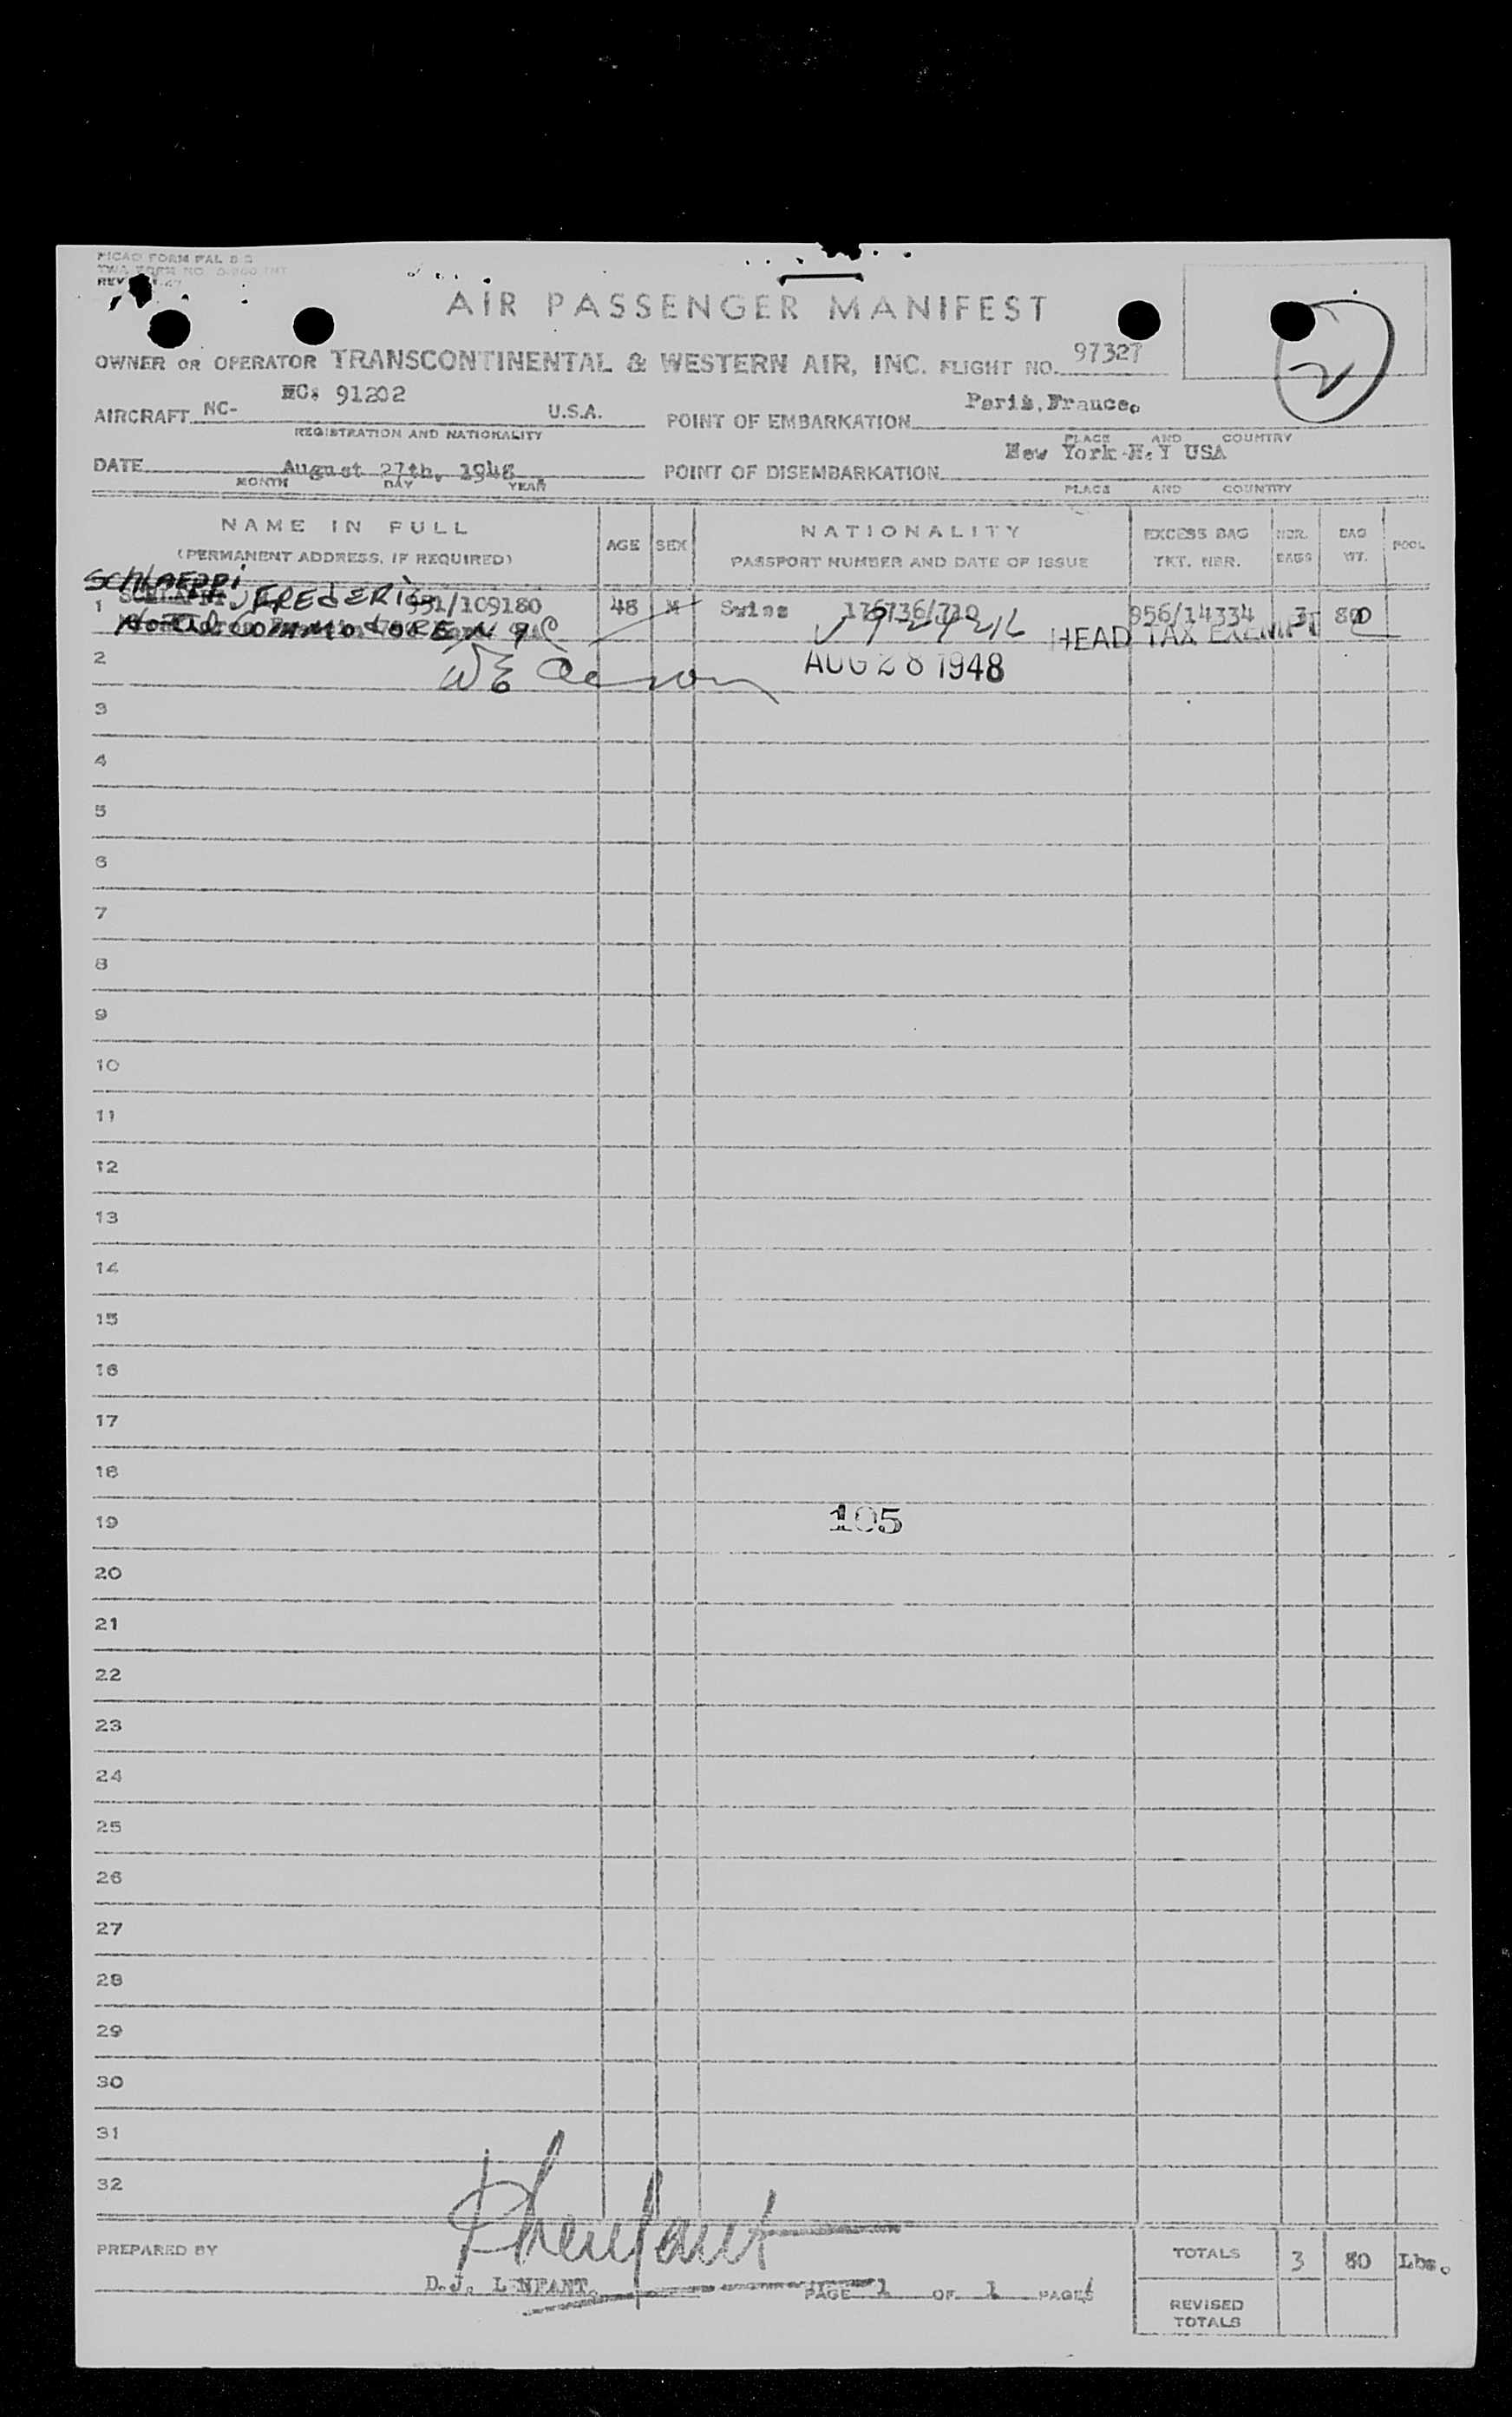 PICAO FORM FAL
REV
AIR PASSENGER MANIFEST
2
OWNER OR OPERATOR TRANSCONTINENTAL & WESTERN AIR, INC. FLIGHT NO. 97327
AIRCRAFT NC- NC: 91202 U.S.A. POINT OF EMBARKATION Paris, France.
REGISTRATION AND NATIONALITY PLACE AND COUNTRY
DATE August 27th, 1948 POINT OF DISEMBARKATION New York N.Y USA
MONTH DAY YEAR PLACE AND COUNTRY
NAME IN FULL AGE SEX NATIONALITY EXCESS BAG NBR. BAG POOL
(PERMANENT ADDRESS, IF REQUIRED) PASSPORT NUMBER AND DATE OF ISSUE TKT. NBR. BAGS WT.
SCHLAEPPi
1 FREdERiC 951/109180 48 M Swiss 176736/710 956/14334 3 80
HOTEL COMMOdORE N Y C HEAD TAX EXEMPT
2 AUG 28 1948
3
4
5
6
7
8
9
10
11
12
13
14
15
16
17
18
19 105
20
21
22
23
24
25
26
27
28
29
30
31
32
PREPARED BY TOTALS 3 80 Lbs.
D.J. LENFANT. PAGE 1 OF 1 PAGES
REVISED
TOTALS